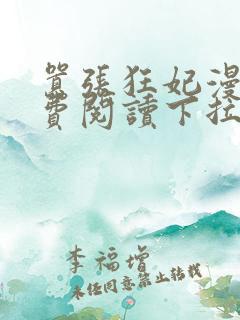 囂張狂妃漫
費閱讀下拉
李福增
未任同意禁止轉載